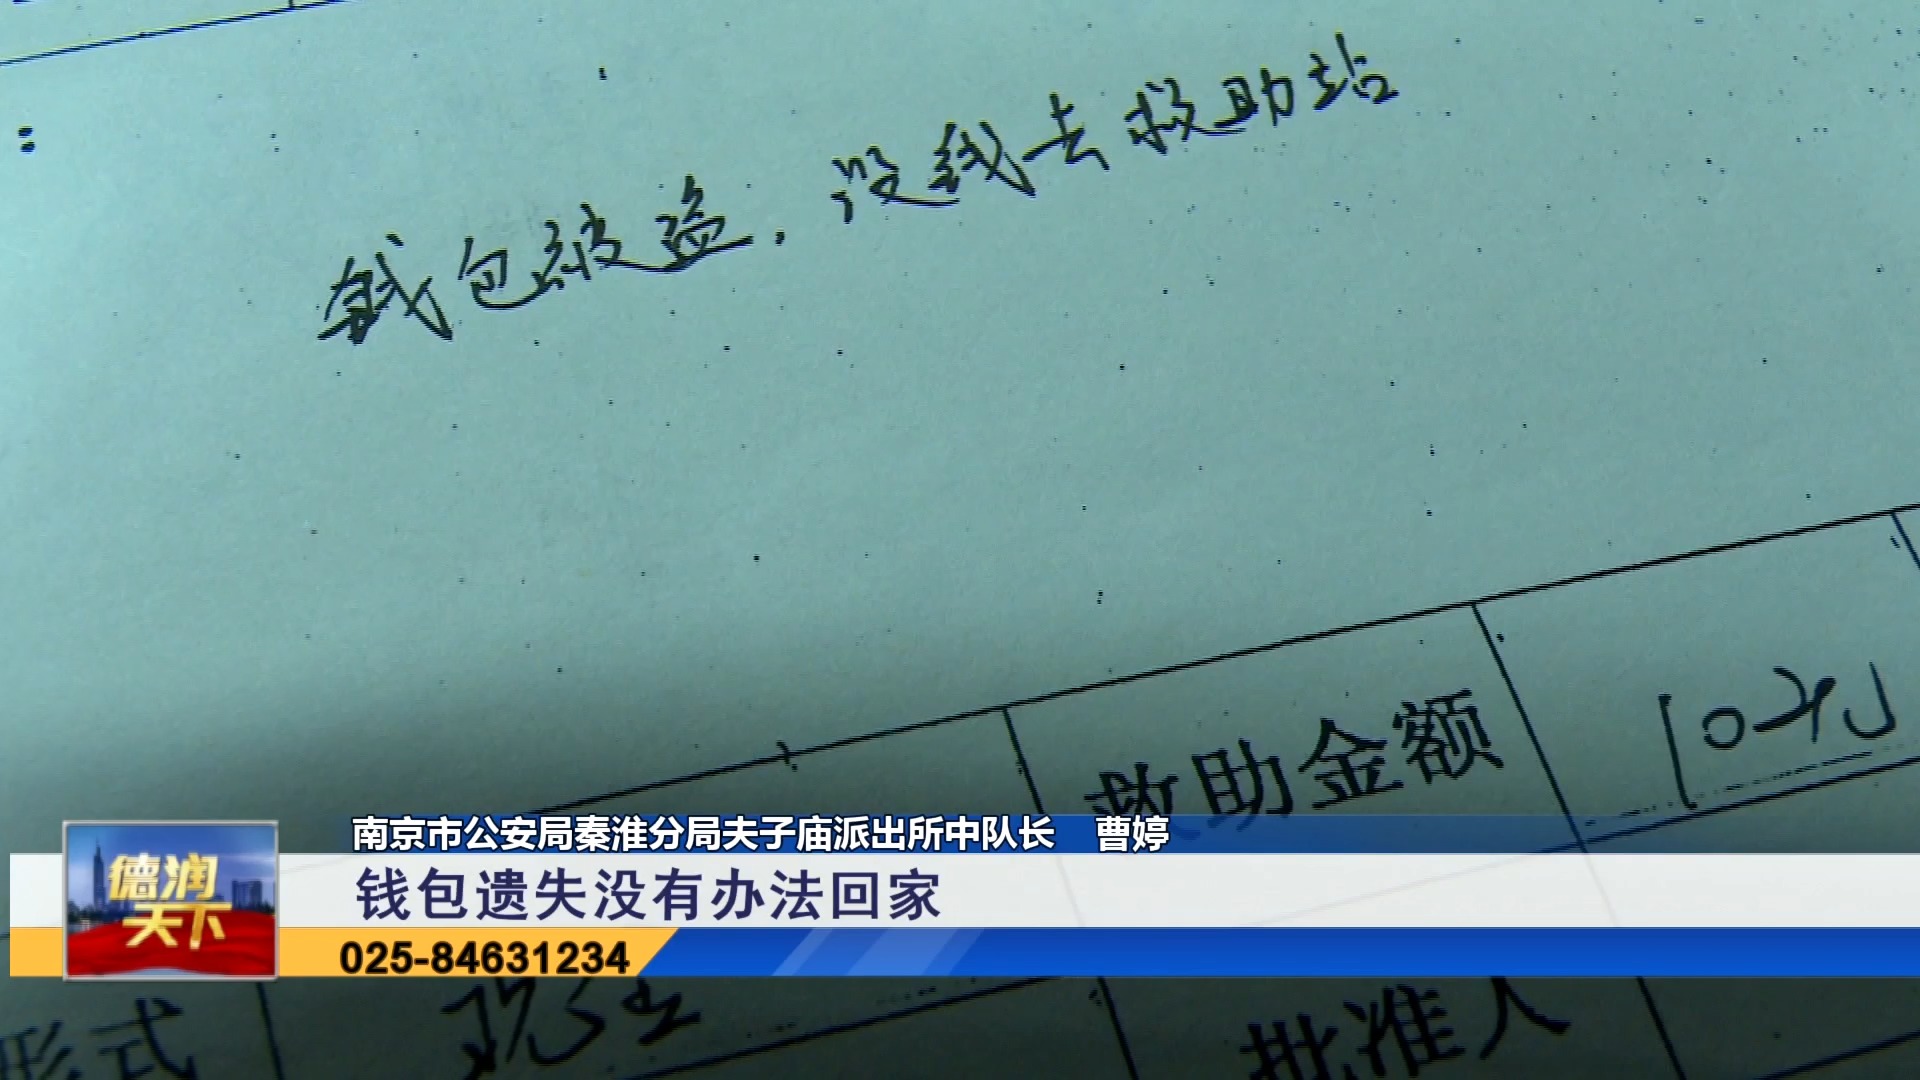 钱包被盗，没钱去救助站
救助金额
10元
南京市公安局秦淮分局夫子庙派出所中队长 曹婷
德润
天下
钱包遗失没有办法回家
025-84631234
形式
现金
批准人